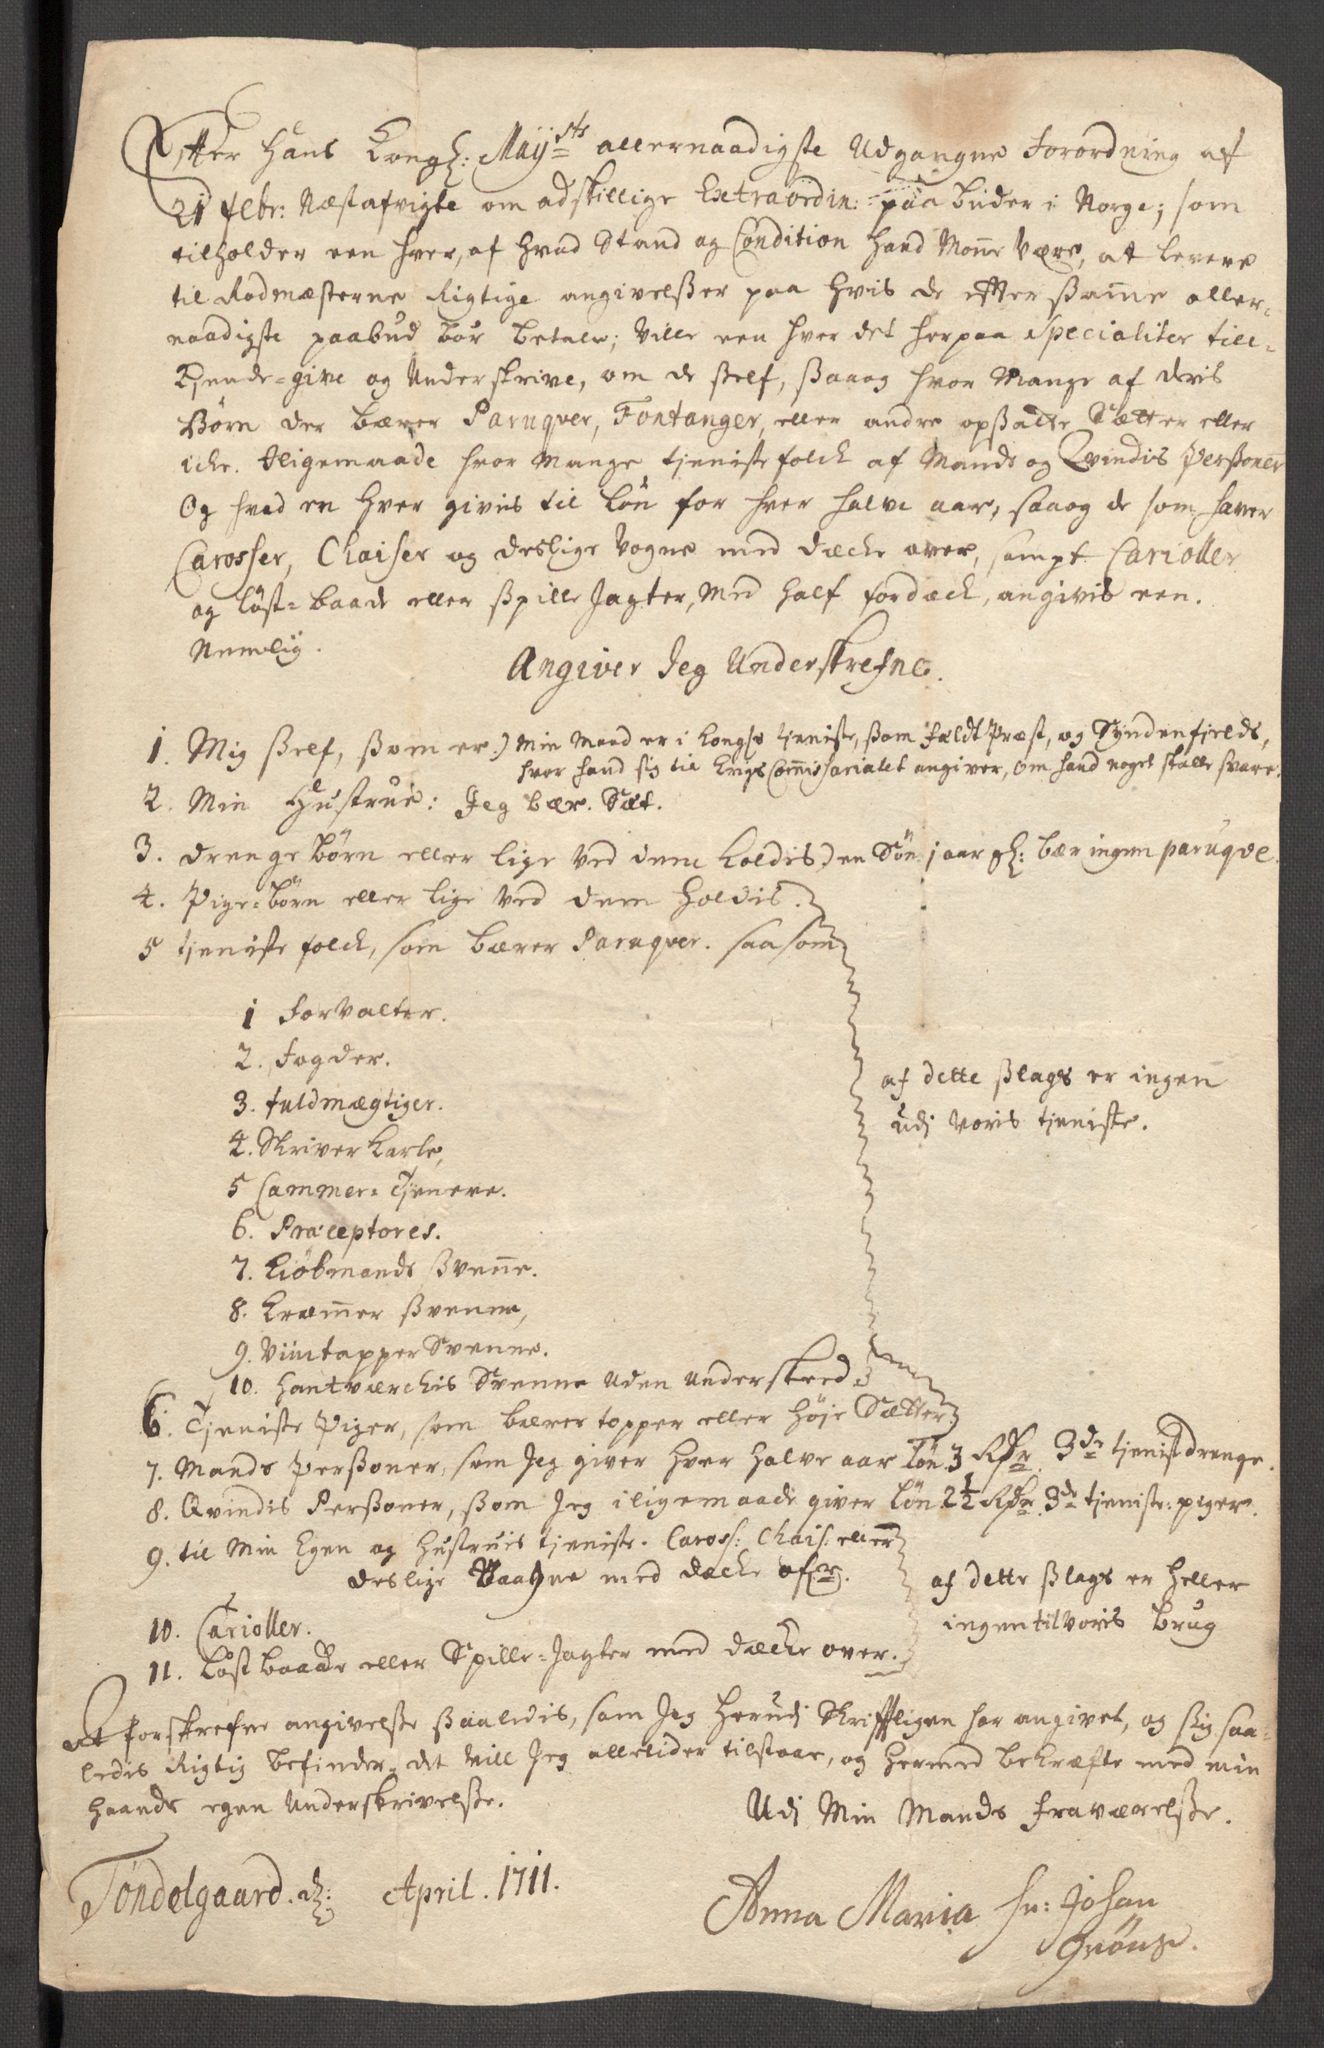 Efter Hans Kongl: Mayts allernaadigste Udgangne Forordning af
21 febr: Næstafvigte om adskillige Extraordin: paabuder i Norge; som
tilholder een hver, af hvad Stand og Condition hand Moñe være, at levere
til Rodmæsterne Rigtige angivelßer paa hvis de efter ßam̃e aller-
naadigste paabud bør betale; Ville een hver det herpaa Specialiter till-
Kjende-give og Underskrive, om de ßelf, ßaaog hvor Mange af deris
Børn der bærer Paruqver, Fontanger, eller andre opßatte Sætter eller
icke. Iligemaade hvor Mange tjeniste folck af Mands og Qvindis Perßoner
Og hvad en hver givis til Løn for hver halve aar, saaog de som haver
Carosser, Chaiser og deslige Vogne med decke over, sampt Carioller
og Løst-baade eller ßpille Jagter, Med half fordeck, angivis een.
Nemlig.
Angiver Jeg Underskrefne.
1. Mig ßelf, ßom er.) Min Mand er i Kongs tjeniste, ßom Feldt Præst, og Syndenfields,
hvor hand sig til Krigs Com̃issariatet angiver, om hand noget skulle svare.
2. Min Hustrue: Jeg bær. Sæt.
3. Drenge børn eller lige ved dem holdis.) en Søn 1 aar gl: bær ingen paruqve.
4. Pige-børn eller lige ved dem holdis.
5 tjeniste folck, som bærer Paruqver. saasom
1 Forvalter.
2. Fogder.
3. Fuldmægtiger.
4. Skriver Karle,
5 Cammer-Tjenere.
6. Præceptores.
7. Kiøbmands ßveñe.
8. Kræm̃er ßvenne,
9. Viintapper Svenne.
10. Hantværckis Svenne Uden Underskeed
af dette ßlags er ingen
udj voris tjeniste.
6. Tjeniste Piger, som bærer topper eller høje Sætter
7. Mands Perßoner, som Jeg giver hver halve aar Løn 3 Rdr. 3de tjenistdrenge.
8. Qvindis Perßoner, ßom Jeg iligemaade giver Løn 2½ Rdr. 3de tjeniste-piger.
9. til Min Egen og Hustruis tjeniste. Caross: Chais: eller
deslige Vaagne med decke ofver.
10. Carioller.
11. Løst baade eller Spille-Jagter med decke over.
af dette ßlags er heller
ingen til voris brug
At forskrefne angivelße ßaaledis, som Jeg herudj Skriftligen har angivet, og ßig saa-
ledis Rigtig befinder, det vill Jeg alletider tilstaae, og hermed bekræfte med min
haands egen Underskrivelße.
Udj Min Mands fraværelße.
Tøndelgaard. d: April. 1711.
Anna Maria Sn: Johan
Grøns.